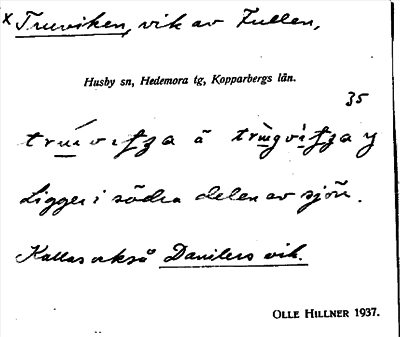 x Truviken, vik av Fullen,
Husby sn, Hedemora tg, Kopparbergs län.
35
Ligger i södra delen av sjön.
Kallas också Danilers vik.
OLLE HILLNER 1937.